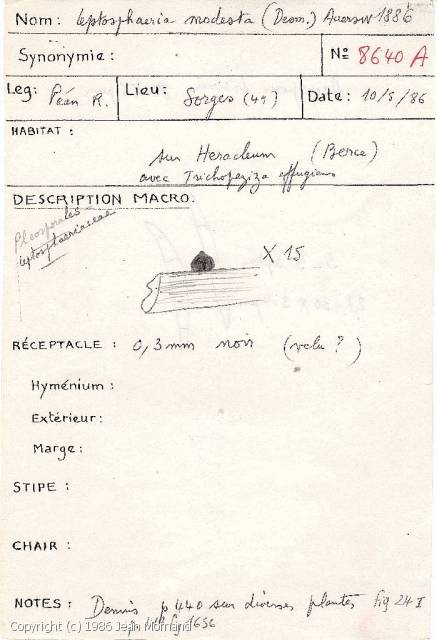 Nom: Leptosphaeria modesta (Desm.) Auersw 1886
Synonymie:
Nº 8640 A
Leg: Péan R.
Lieu: Sorges (49)
Date: 10/5/86
HABITAT :
sur Heracleum (Berce)
avec Trichopeziza effugiens
DESCRIPTION MACRO.
Pleosporales
Leptosphaeriaceae
X 15
RÉCEPTACLE : 0,3mm noir (velu ?)
Hyménium :
Extérieur:
Marge:
STIPE :
CHAIR :
NOTES : Dennis p 440 sur diverses plantes fig 24 I
fig 1656
Copyright (c) 1986 Jean Mornand